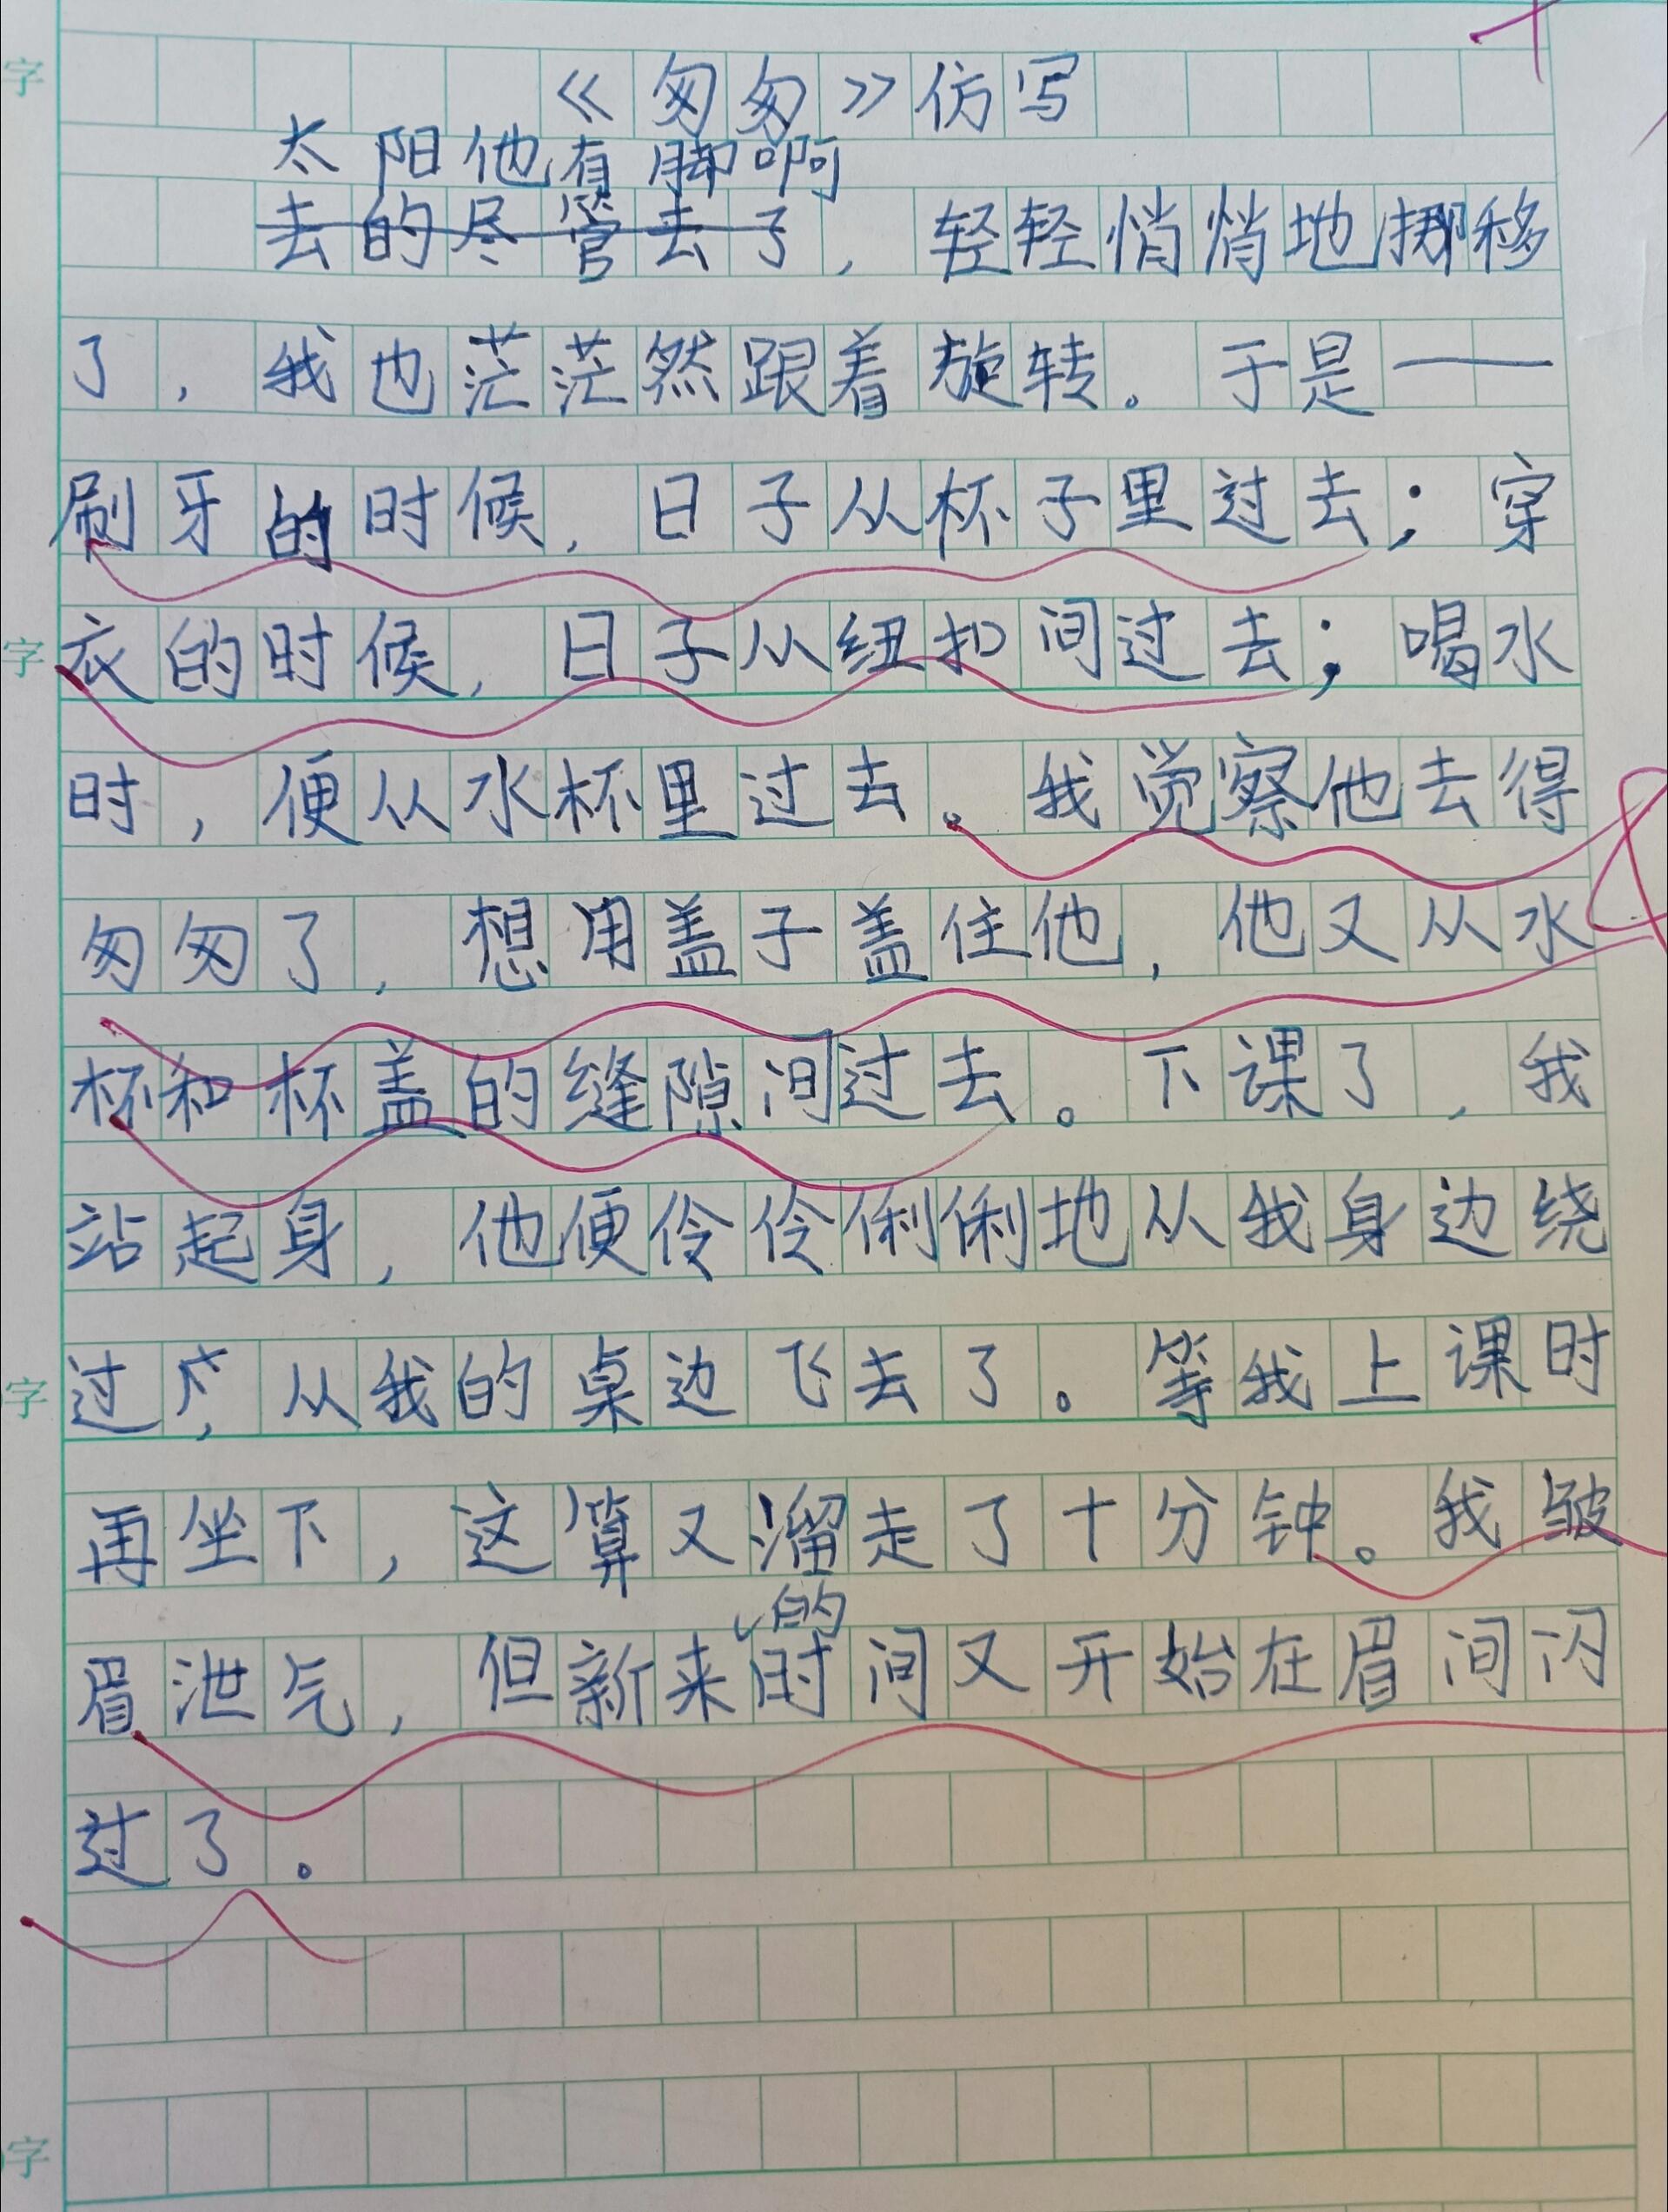 《匆匆》仿写
太阳他有脚啊
去的尽管去了，轻轻悄悄地挪移
了，我也茫茫然跟着旋转。于是——
刷牙的时候，日子从杯子里过去；穿
衣的时候，日子从纽扣间过去；喝水
时，便从水杯里过去。我觉察他去得
匆匆了，想用盖子盖住他，他又从水
杯和杯盖的缝隙间过去。下课了，我
站起身，他便伶伶俐俐地从我身边绕
过，从我的桌边飞去了。等我上课时
再坐下，这算又溜走了十分钟。我皱
的
眉泄气，但新来时间又开始在眉间闪
过了。
字
字
字
字